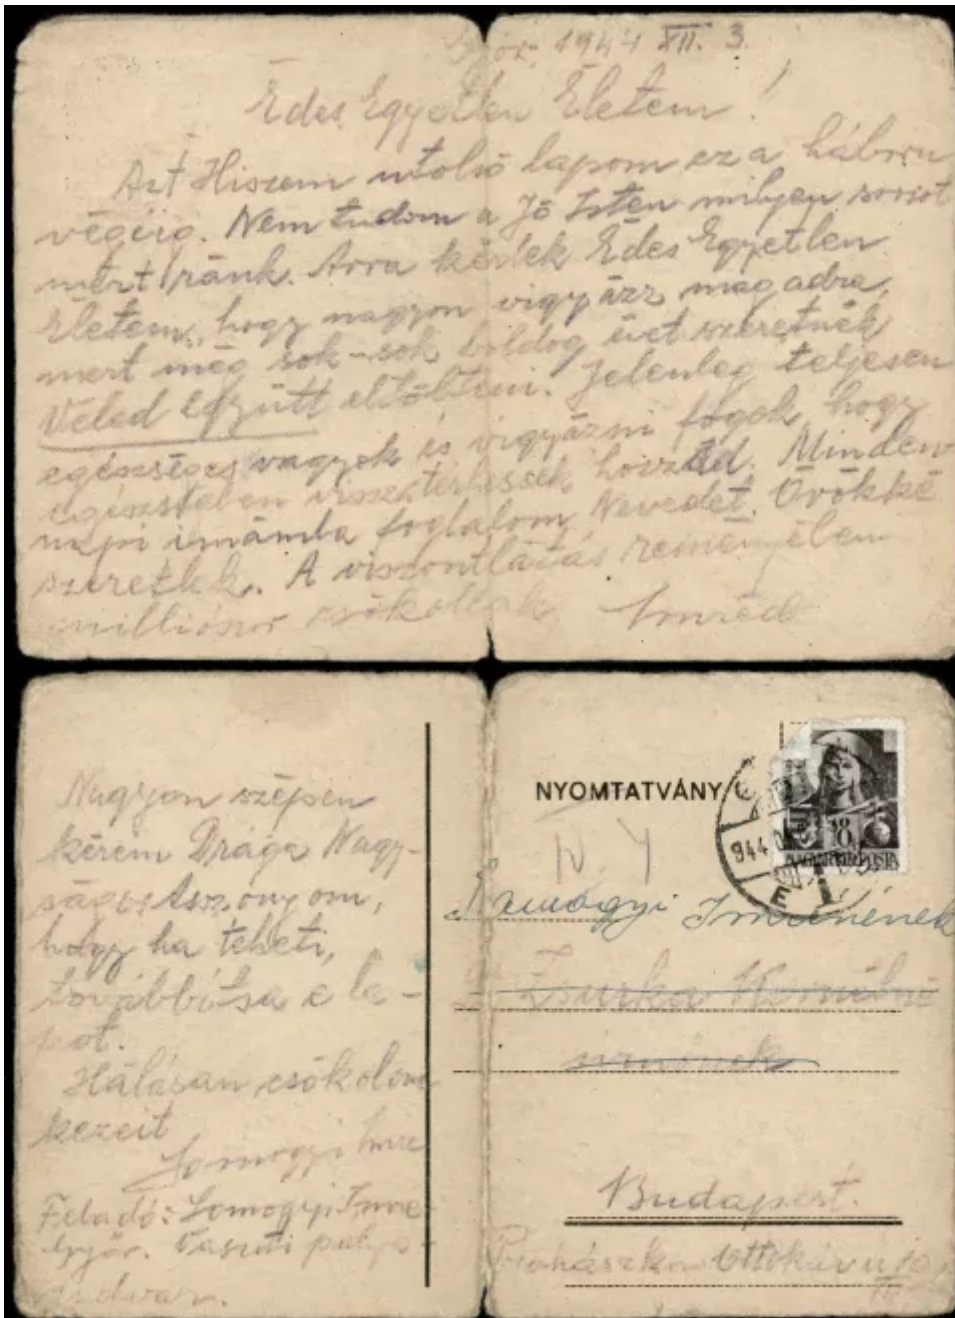 Győr, 1944 XII. 3.
Édes Egyetlen Életem!
Azt Hiszem utolsó lapom ez a háboru
végéig. Nem tudom a Jó Isten milyen sorsot
mért ránk. Arra kérlek Édes Egyetlen
Életem, hogy nagyon vigyázz magadra,
mert még sok-sok boldog évet szeretnék
Véled együtt eltölteni. Jelenleg teljesen
egészséges vagyok és vigyázni fogok, hogy
egészségben visszatérhessek hozzád. Minden
napi imámba foglalom Nevedet. Örökké
szeretlek. A viszontlátás reményében
milliószor csókollak Imréd
Nagyon szépen
kérem Drága Nagy-
ságos Asszonyom,
hogy ha teheti,
továbbítsa e la-
pot.
Hálásan csókolom
kezeit
Somogyi Imre
Feladó: Somogyi Imre
Győr. Vasuti pálya-
udvar.
NYOMTATVÁNY
N. Y
944
MAGYAR KIR. POSTA
Somogyi Imrénének
Zsurka Kornélné
úrnőnek
Budapest.
Prohászka Ottokár u 10